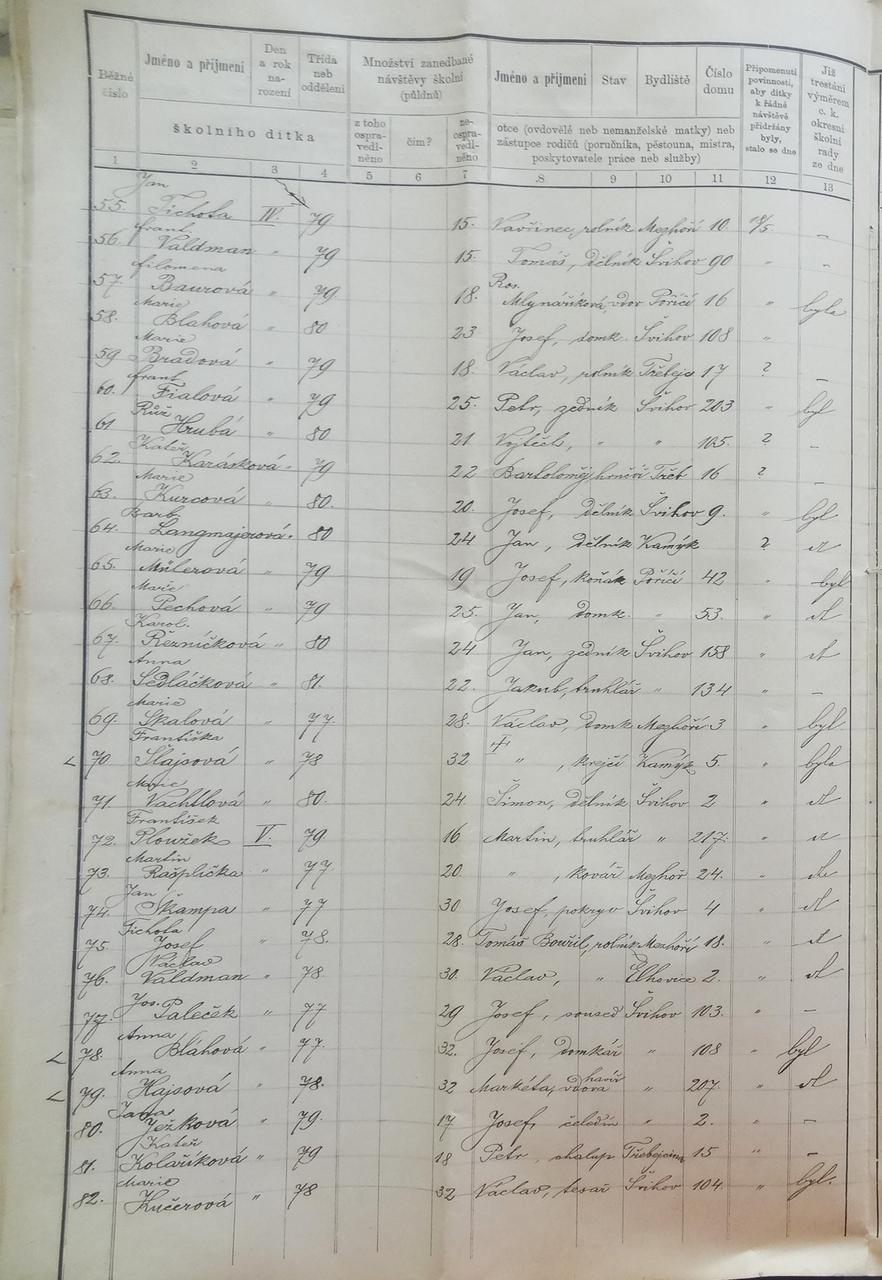 Běžné číslo | Jméno a příjmení | Den a rok narození | Třída neb oddělení | Množství zanedbané návštěvy školní (půldnů) | Jméno a příjmení | Stav | Bydliště | Číslo domu | Připomenutí povinnosti, aby dítky k řádné návštěvě přidržány byly, stalo se dne | Již trestáni výměrem c. k. okresní školní rady ze dne
školního dítka | z toho ospravedlněno | čím? | neospravedlněno | otce (ovdovělé neb nemanželské matky) neb zástupce rodičů (poručníka, pěstouna, mistra, poskytovatele práce neb služby)
1 2 3 4 5 6 7 8 9 10 11 12 13
Jan
55. Tichota IV. 79 15. Vavřinec, rolník Mezhoří 10. –
Frant.
56. Valdman " 79 15. Tomáš, dělník Švihov 90 " –
Filomena
57. Baurová " 79 18. Ros. Mlynaříková, vdov Poříčí 16 " byla
Marie
58. Bláhová " 80 23 Josef, domk. Švihov 108 "
Marie
59 Bradová " 79 18. Václav, rolník 17 ? –
Frant
60. Fialová " 79 25. Petr, zedník Švihov 203 " byl
Růž
61 Hrubá " 80 21 Vojtěch, " " 105. ? –
Kateř.
62. Karásková " 79 22 Bartoloměj hrnčíř Třeb 16 ? –
Marie
63. Kurcová " 80. 20. Josef, dělník Švihov 9. " byl
Barb.
64. Langmajerová " 80 24 Jan, dělník Kamýk ? dt
Marie
65. Műlerová " 79 19 Josef, Poříčí 42 " byl
Marie
66. Pechová " 79 25. Jan, domk. " 53. " dt
Karol.
67. Řezníčková " 80 24 Jan, zedník Švihov 158 " dt
Anna
68. Sedláčková " 81. 22. Jakub, truhlář " 134 " –
Marie
69. Skalová " 77. 28. Václav, domk Mezhoří 3 " byl
Františka
70 Šlajsová " 78 32 † " , krejčí Kamýk 5. " byla
Marie
71 Vachtlová " 80. 24. Šimon, dělník Švihov 2 " dt
František
72. Ploužek V. 79 16 Martin, truhlář " 217. " dt
Martin
73. Rašplička " 77 20. " , kovář Mezhoř 24. " dt
Jan
74. Škampa " 77 30 Josef, pokryv Švihov 4 " dt
Tichota
75. Josef " 78. 28. Tomáš Bouřil, rolník Mezhoří 18. " dt
Václav
76. Valdman " 78 30. Václav, " Elhovice 2. " dt
Jos.
77. Paleček " 77 29 Josef, soused Švihov 103. " –
Anna
78. Bláhová " 77. 32. Josef, domkář " 108 " byl
Anna
79. Hajsová " 78. 32 Markéta, vdova " 207. " dt
80. Ježková " 79. 17 Josef, čeledín " 2. " –
Kateř
81. Kolaříková " 79 18 Petr, chalup 15 " –
Marie
82. Kučerová " 78 32 Václav, tesař Švihov 104. " byl.